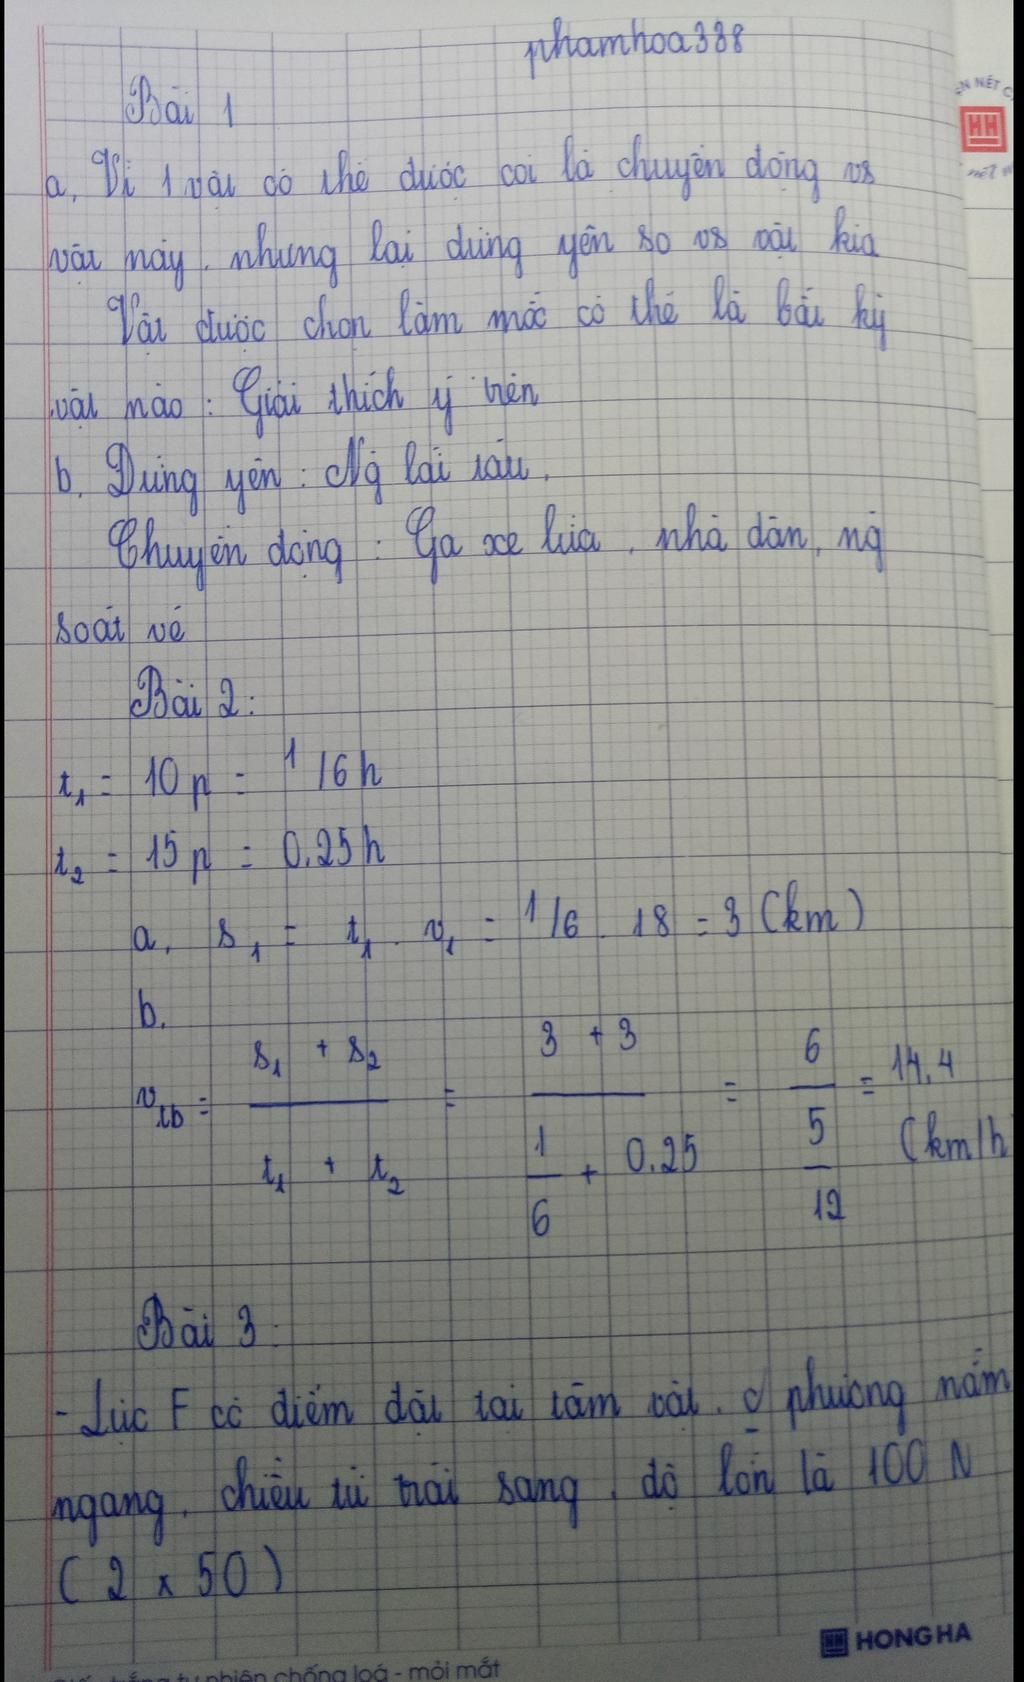 phamhoa338
Bài 1
ÊN NÉT C
HH
a, Vì 1 vật có thể được coi là chuyển động vs
vật này, nhưng lại đứng yên so vs vật kia
Vật được chọn làm mốc có thể là bất kỳ
vật nào : Giải thích ý trên
b. Đứng yên : Ng lái tàu.
Chuyển động : Ga xe lửa, nhà dân, ng
soát vé
Bài 2 :
t₁ = 10 p = 1/6 h
t₂ = 15 p = 0.25 h
a, s₁ = t₁ . v₁ = 1/6 . 18 = 3 (km)
b.
s₁ + s₂ 3 + 3 6
v_tb = ――― = ――― = ― = 14,4
t₁ + t₂ 1/6 + 0.25 5/12 (km/h
Bài 3 :
- Lực F có điểm đặt tại tâm vật, có phương nằm
ngang, chiều từ trái sang, độ lớn là 100 N
( 2 x 50 )
HH HONG HA
tự nhiên chống loá - mỏi mắt